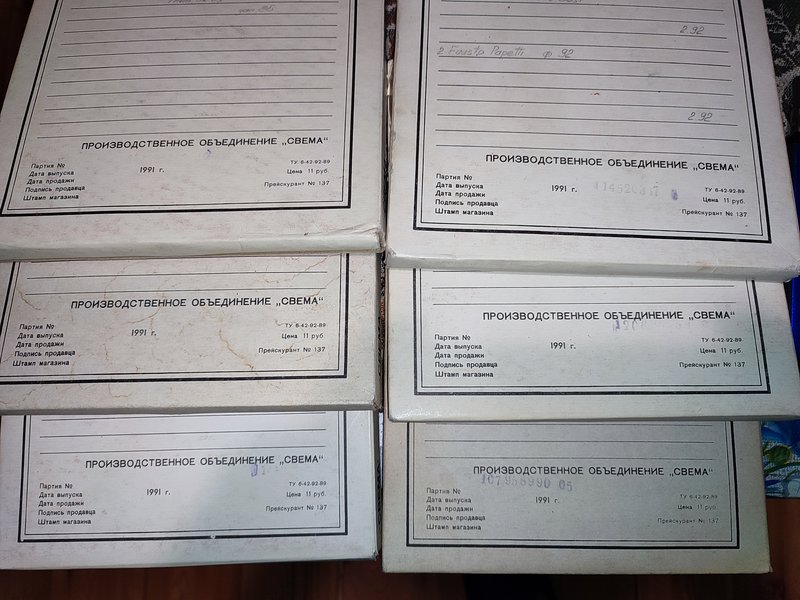 2.92
2 Fausto Papetti ф 92
2.92
ПРОИЗВОДСТВЕННОЕ ОБЪЕДИНЕНИЕ „СВЕМА“
Партия №
Дата выпуска 1991 г.
Дата продажи
Подпись продавца
Штамп магазина
ТУ 6-42-92-89
Цена 11 руб.
Прейскурант № 137
ПРОИЗВОДСТВЕННОЕ ОБЪЕДИНЕНИЕ „СВЕМА“
Партия №
Дата выпуска 1991 г.
Дата продажи
Подпись продавца
Штамп магазина
ТУ 6-42-92-89
Цена 11 руб.
Прейскурант № 137
ПРОИЗВОДСТВЕННОЕ ОБЪЕДИНЕНИЕ „СВЕМА“
Партия №
Дата выпуска 1991 г.
Дата продажи
Подпись продавца
Штамп магазина
ТУ 6-42-92-89
Цена 11 руб.
Прейскурант № 137
ПРОИЗВОДСТВЕННОЕ ОБЪЕДИНЕНИЕ „СВЕМА“
Партия №
Дата выпуска 1991 г.
Дата продажи
Подпись продавца
Штамп магазина
ТУ 6-42-92-89
Цена 11 руб.
Прейскурант № 137
ПРОИЗВОДСТВЕННОЕ ОБЪЕДИНЕНИЕ „СВЕМА“
Партия №
Дата выпуска 1991 г.
Дата продажи
Подпись продавца
Штамп магазина
ТУ 6-42-92-89
Цена 11 руб.
Прейскурант № 137
ПРОИЗВОДСТВЕННОЕ ОБЪЕДИНЕНИЕ „СВЕМА“
Партия №
Дата выпуска 1991 г.
Дата продажи
Подпись продавца
Штамп магазина
ТУ 6-42-92-89
Цена 11 руб.
Прейскурант № 137